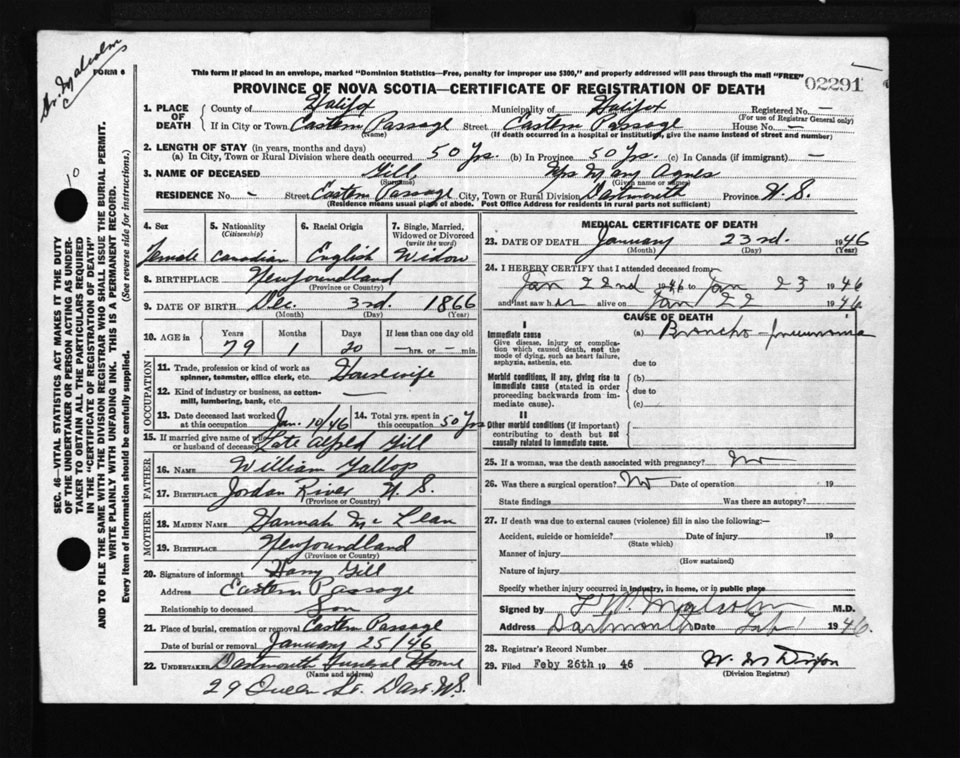 Dr. Malcolm
FORM 6
This form if placed in an envelope, marked "Dominion Statistics—Free, penalty for improper use $300," and properly addressed will pass through the mail "FREE"
02291
PROVINCE OF NOVA SCOTIA—CERTIFICATE OF REGISTRATION OF DEATH
1. PLACE OF DEATH
County of Halifax Municipality of Halifax Registered No. —
(For use of Registrar General only)
If in City or Town Eastern Passage Street Eastern Passage House No. —
(Name) (If death occurred in a hospital or institution, give the name instead of street and number)
2. LENGTH OF STAY (in years, months and days)
(a) In City, Town or Rural Division where death occurred 50 Yrs. (b) In Province 50 Yrs. (c) In Canada (if immigrant) —
3. NAME OF DECEASED Gill, Mrs Mary Agnes
(Surname) (Given name or names)
RESIDENCE No. - Street Eastern Passage City, Town or Rural Division Dartmouth Province N.S.
(Residence means usual place of abode. Post Office Address for residents in rural parts not sufficient)
4. Sex 5. Nationality (Citizenship) 6. Racial Origin 7. Single, Married, Widowed or Divorced (write the word)
Female Canadian English Widow
8. BIRTHPLACE Newfoundland
(Province or Country)
9. DATE OF BIRTH Dec. 3rd. 1866
(Month) (Day) (Year)
10. AGE in Years Months Days If less than one day old
79 1 20 — hrs. or — min.
OCCUPATION
11. Trade, profession or kind of work as spinner, teamster, office clerk, etc. Housewife
12. Kind of industry or business, as cotton-mill, lumbering, bank, etc. —
13. Date deceased last worked at this occupation Jan. 10/46 14. Total yrs. spent in this occupation 50 Yrs
15. If married give name of wife or husband of deceased Late Alfred Gill
FATHER
16. NAME William Gallop
17. BIRTHPLACE Jordan River N.S.
(Province or Country)
MOTHER
18. MAIDEN NAME Hannah McLean
19. BIRTHPLACE Newfoundland
(Province or Country)
20. Signature of informant Harry Gill
Address Eastern Passage
Relationship to deceased Son
21. Place of burial, cremation or removal Eastern Passage
Date of burial or removal January 25/46
22. UNDERTAKER Dartmouth Funeral Home
(Name and address)
29 Queen St. Dart. N.S.
MEDICAL CERTIFICATE OF DEATH
23. DATE OF DEATH January 23rd. 1946
(Month) (Day) (Year)
24. I HEREBY CERTIFY that I attended deceased from
Jan 22nd 1946 to Jan 23 1946
and last saw her alive on Jan 22 1946
CAUSE OF DEATH
I
Immediate cause
Give disease, injury or complication which caused death, not the mode of dying, such as heart failure, asphyxia, asthenia, etc.
(a) Broncho-pneumonia
due to
Morbid conditions, if any, giving rise to immediate cause (stated in order proceeding backwards from immediate cause).
(b)
due to
(c)
II
Other morbid conditions (if important) contributing to death but not causally related to immediate cause.
25. If a woman, was the death associated with pregnancy? No
26. Was there a surgical operation? No Date of operation 19
State findings Was there an autopsy?
27. If death was due to external causes (violence) fill in also the following:—
Accident, suicide or homicide? Date of injury 19
(State which)
Manner of injury
(How sustained)
Nature of injury
Specify whether injury occurred in industry, in home, or in public place
Signed by Malcolm M.D.
Address Dartmouth Date Feb 1 1946.
28. Registrar's Record Number
29. Filed Feby 26th 1946
(Division Registrar)
SEC. 46—VITAL STATISTICS ACT MAKES IT THE DUTY
OF THE UNDERTAKER OR PERSON ACTING AS UNDER-
TAKER TO OBTAIN ALL THE PARTICULARS REQUIRED
IN THE "CERTIFICATE OF REGISTRATION OF DEATH"
AND TO FILE THE SAME WITH THE DIVISION REGISTRAR WHO SHALL ISSUE THE BURIAL PERMIT.
WRITE PLAINLY WITH UNFADING INK. THIS IS A PERMANENT RECORD.
Every item of information should be carefully supplied. (See reverse side for instructions.)
10